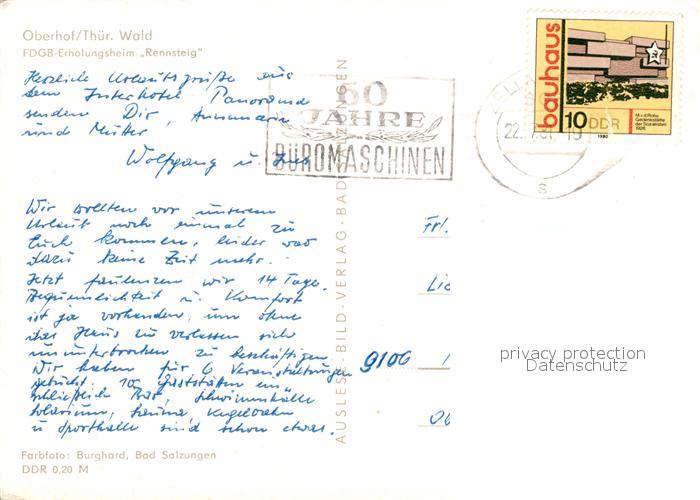 Oberhof/Thür. Wald
FDGB-Erholungsheim „Rennsteig"
Herzliche Urlaubsgrüße aus
dem Interhotel Panorama
senden Dir, Annemarie
und Mutter,
Wolfgang u. Ines
Wir wollten vor unserem
Urlaub noch einmal zu
Euch kommen, leider war
dazu keine Zeit mehr.
Jetzt faulenzen wir 14 Tage.
Bequemlichkeit u. Komfort
ist ja vorhanden, um ohne
das Haus zu verlassen sich
ununterbrochen zu beschäftigen.
Wir haben für 6 Veranstaltungen
gebucht. 10 Gaststätten ein
schließlich Bar, Schwimmhalle
Solarium, Sauna, Kegelbahn
u. Sporthalle sind schon etwas.
Farbfoto: Burghard, Bad Salzungen
DDR 0,20 M
AUSLESE-BILD-VERLAG-BAD SALZUNGEN
60
JAHRE
BÜROMASCHINEN
22.7.81
s
bauhaus
10 DDR
M.v.d.Rohe
Gedenkstätte
der Sozialisten
1926
1980
Frl.
9106
privacy protection
Datenschutz